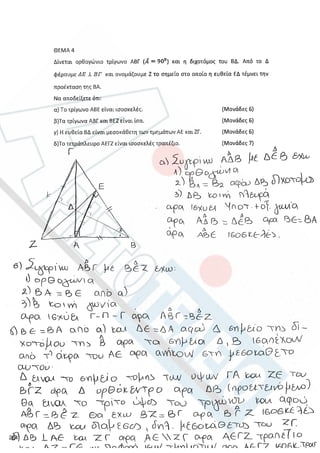 ΘΕΜΑ 4
Δίνεται ορθογώνιο τρίγωνο ΑΒΓ (Â = 90⁰) και η διχοτόμος του ΒΔ. Από το Δ
φέρουμε ΔΕ ⊥ ΒΓ και ονομάζουμε Ζ το σημείο στο οποίο η ευθεία ΕΔ τέμνει την
προέκταση της ΒΑ.
Να αποδείξετε ότι:
α) Το τρίγωνο ΑΒΕ είναι ισοσκελές. (Μονάδες 6)
β)Τα τρίγωνα ΑΒΓ και ΒΕΖ είναι ίσα. (Μονάδες 6)
γ) Η ευθεία ΒΔ είναι μεσοκάθετη των τμημάτων ΑΕ και ΖΓ. (Μονάδες 6)
δ)Το τετράπλευρο ΑΕΓΖ είναι ισοσκελές τραπέζιο. (Μονάδες 7)
Γ
Ε
Δ
Ζ Α Β
α) Συγκρίνω ΑΔ̂Β με ΔΕ̂Β έχω
1) ορθογώνια
2) Β̂₁ = Β̂₂ αφού ΔΒ διχοτόμος
3) ΔΒ κοινή πλευρά
άρα ισχύει Υποτ + οξ. γωνία
άρα ΑΔ̂Β = ΔΕ̂Β άρα ΒΕ=ΒΑ
άρα ΑΒ̂Ε ισοσκελές.
β) Συγκρίνω ΑΒ̂Γ με ΒΕ̂Ζ έχω:
1) ορθογώνια
2) ΒΑ = ΒΕ από α)
3) Β̂ κοινή γωνία
άρα ισχύει Γ-Π-Γ άρα ΑΒ̂Γ=ΒΕ̂Ζ
γ) ΒΕ=ΒΑ από α) και ΔΕ=ΔΑ αφού Δ σημείο της δι-
χοτόμου της Β̂ άρα τα σημεία Δ, Β ισαπέχουν
από τ' άκρα του ΑΕ άρα ανήκουν στη μεσοκάθετο
αυτού.
Δ είναι το σημείο τομής των υψών ΓΑ και ΖΕ του
ΒΓ̂Ζ άρα Δ ορθόκεντρο άρα ΔΒ (προεκτεινόμενο)
θα είναι το τρίτο ύψος του τριγώνου και αφού
ΑΒ̂Γ = ΒΕ̂Ζ θα έχω ΒΖ=ΒΓ άρα ΒΓ̂Ζ ισοσκελές
άρα ΔΒ και διάμεσος, δηλ. μεσοκάθετος του ΖΓ.
δ) ΔΒ⊥ΑΕ και ΖΓ άρα ΑΕ//ΖΓ άρα ΑΕΓΖ τραπέζιο